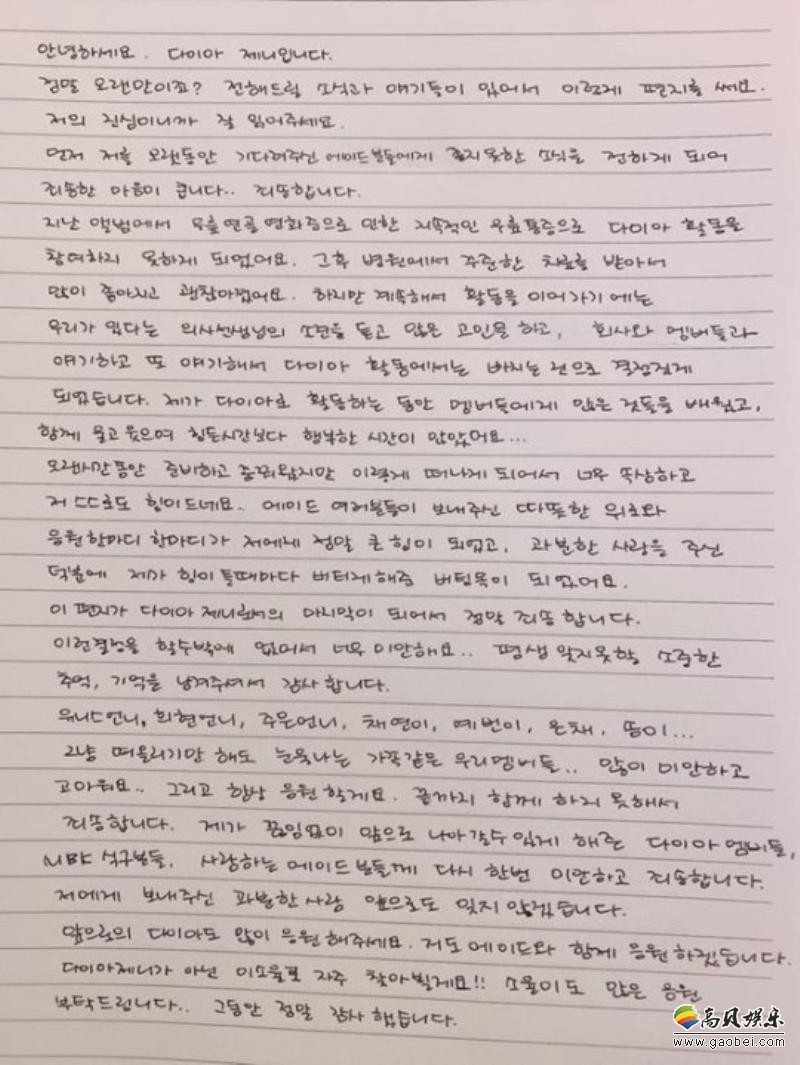 안녕하세요. 다이아 제니입니다.
정말 오랜만이죠? 전해드릴 소식과 얘기들이 있어서 이렇게 편지를 써요.
저의 진심이니까 잘 읽어주세요.
먼저 저를 오랫동안 기다려주신 에이드분들에게 좋지못한 소식을 전하게 되어
죄송한 마음이 큽니다.. 죄송합니다.
지난 앨범에서 무릎연골 연화증으로 인한 지속적인 무릎통증으로 다이아 활동을
참여하지 못하게 되었어요. 그후 병원에서 꾸준한 치료를 받아서
많이 좋아지고 괜찮아졌어요. 하지만 계속해서 활동을 이어가기에는
무리가 있다는 의사선생님의 소견을 듣고 많은 고민을 하고, 회사와 멤버들과
얘기하고 또 얘기해서 다이아 활동에서는 빠지는 것으로 결정짓게
되었습니다. 제가 다이아로 활동하는 동안 멤버들에게 많은 것들을 배웠고,
함께 울고 웃으며 힘든시간보다 행복한 시간이 많았어요...
오랜시간동안 준비하고 꿈꿔왔지만 이렇게 떠나게 되어서 너무 속상하고
저 스스로도 힘이드네요. 에이드 여러분들이 보내주신 따뜻한 위로와
응원한마디 한마디가 저에게 정말 큰 힘이 되었고, 과분한 사랑을 주신
덕분에 제가 힘이 들때마다 버티게해준 버팀목이 되었어요.
이 편지가 다이아 제니로서의 마지막이 되어서 정말 죄송합니다.
이런결정을 할수밖에 없어서 너무 미안해요.. 평생 잊지못할 소중한
추억, 기억을 남겨주셔서 감사합니다.
유니스언니, 희현언니, 주은언니, 채연이, 예빈이, 은채, 똥이...
그냥 떠올리기만 해도 눈물나는 가족같은 우리멤버들.. 많이 미안하고
고마워요.. 그리고 항상 응원할게요. 끝까지 함께 하지 못해서
죄송합니다. 제가 끊임없이 앞으로 나아갈수 있게 해준 다이아 멤버들,
MBK 식구분들, 사랑하는 에이드 분들께 다시 한번 미안하고 죄송합니다.
저에게 보내주신 과분한 사랑 앞으로도 잊지 않겠습니다.
앞으로의 다이아도 많이 응원해주세요. 저도 에이드와 함께 응원하겠습니다.
다이아제니가 아닌 이소율로 자주 찾아뵐게요!! 소율이도 많은 응원
부탁드립니다.. 그동안 정말 감사했습니다.
高贝娱乐
www.gaobei.com